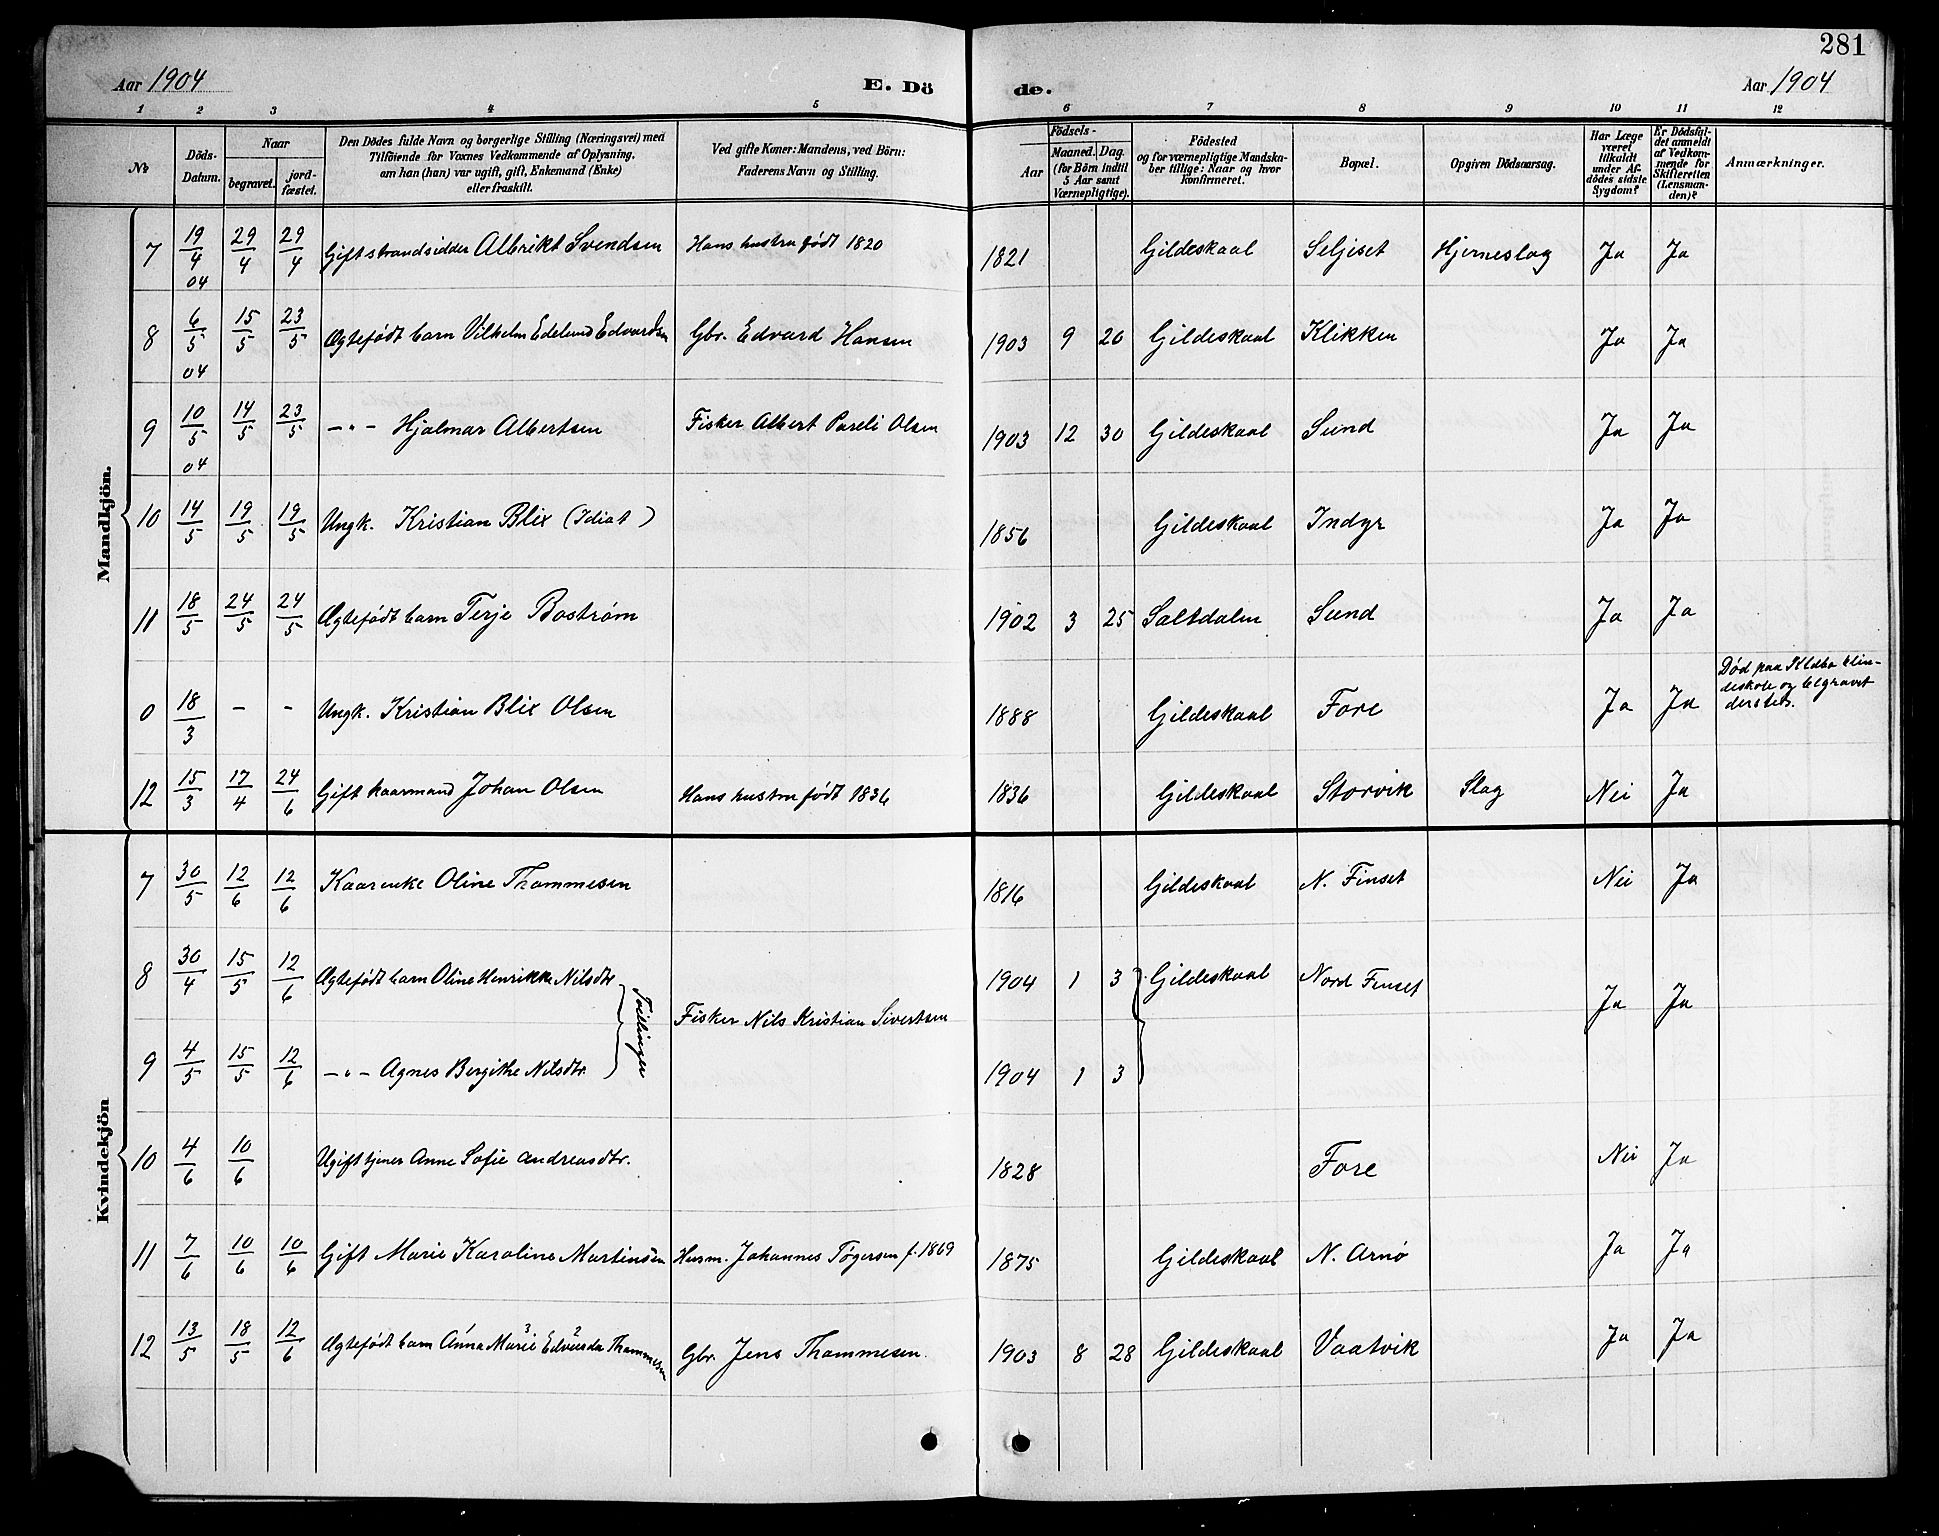 281
Aar 1904 E. Dö de. Aar 1904
1 2 3 4 5 6 7 8 9 10 11 12
No Döds-Datum. Naar begravet. jordfæstet. Den Dödes fulde Navn og borgerlige Stilling (Næringsvei) med Tilföiende for Voxnes Vedkommende af Oplysning, om han (hun) var ugift, gift, Enkemand (Enke) eller fraskilt. Ved gifte Koner: Mandens, ved Börn: Faderens Navn og Stilling. Födsels- Aar Maaned. Dag. (for Börn indtil 5 Aar samt Værnepligtige). Födested og for værnepligtige Mandskaber tillige: Naar og hvor konfirmeret. Bopæl. Opgiven Dödsaarsag. Har Læge været tilkaldt under Afdödes sidste Sygdom? Er Dödsfaldet anmeldt af Vedkommende for Skifteretten (Lensmanden)? Anmærkninger.
Mandkjön.
7 19/4 04 29/4 29/4 Gift strandsidder Albrikt Svendsen Hans hustru født 1820 1821 Gildeskaal Seljeset Hjerneslag Ja Ja
8 6/5 04 15/5 23/5 Ægtefødt barn Vilhelm Edelund Edvardsen Gbr. Edvard Hansen 1903 9 20 Gildeskaal Klikken Ja Ja
9 10/5 04 14/5 23/5 -"- Hjalmar Albertsen Fisker Albert Pareli Olsen 1903 12 30 Gildeskaal Sund Ja Ja
10 14/5 19/5 19/5 Ungk. Kristian Blix (Idiot) 1856 Gildeskaal Indyr Ja Ja
11 18/5 24/5 24/5 Ægtefødt barn Terje Bostrøm 1902 3 25 Saltdalen Sund Ja Ja
0 18/3 - - Ungk. Kristian Blix Olsen 1888 Gildeskaal Fore Ja Ja Død paa Klæbo blindeskole og begravet dersteds.
12 15/3 17/4 24/6 Gift kaarmand Johan Olsen Hans hustru født 1836 1836 Gildeskaal Storvik Slag Nei Ja
Kvindekjön
7 30/5 12/6 12/6 Kaarenke Oline Thommesen 1816 Gildeskaal N. Finset Nei Ja
8 30/4 15/5 12/6 Ægtefødt barn Oline Henrikke Nilsdtr Tvillinger Fisker Nils Kristian Sivertsen 1904 1 3 Gildeskaal Nord Finset Ja Ja
9 4/5 15/5 12/6 -"- Agnes Bergithe Nilsdtr. 1904 1 3
10 4/6 10/6 Ugift tjener Anne Sofie Andreasdtr. 1828 Fore Nei Ja
11 7/6 10/6 10/6 Gift Marie Karoline Martinsen Husm. Johannes Tøgersen f. 1869 1875 Gildeskaal N. Arnø Ja Ja
12 13/5 18/5 12/6 Ægtefødt barn Anna 1 Marie 3 Edvarda 2 Thommesen Gbr. Jens Thommesen. 1903 8 28 Gildeskaal Vaatvik Ja Ja